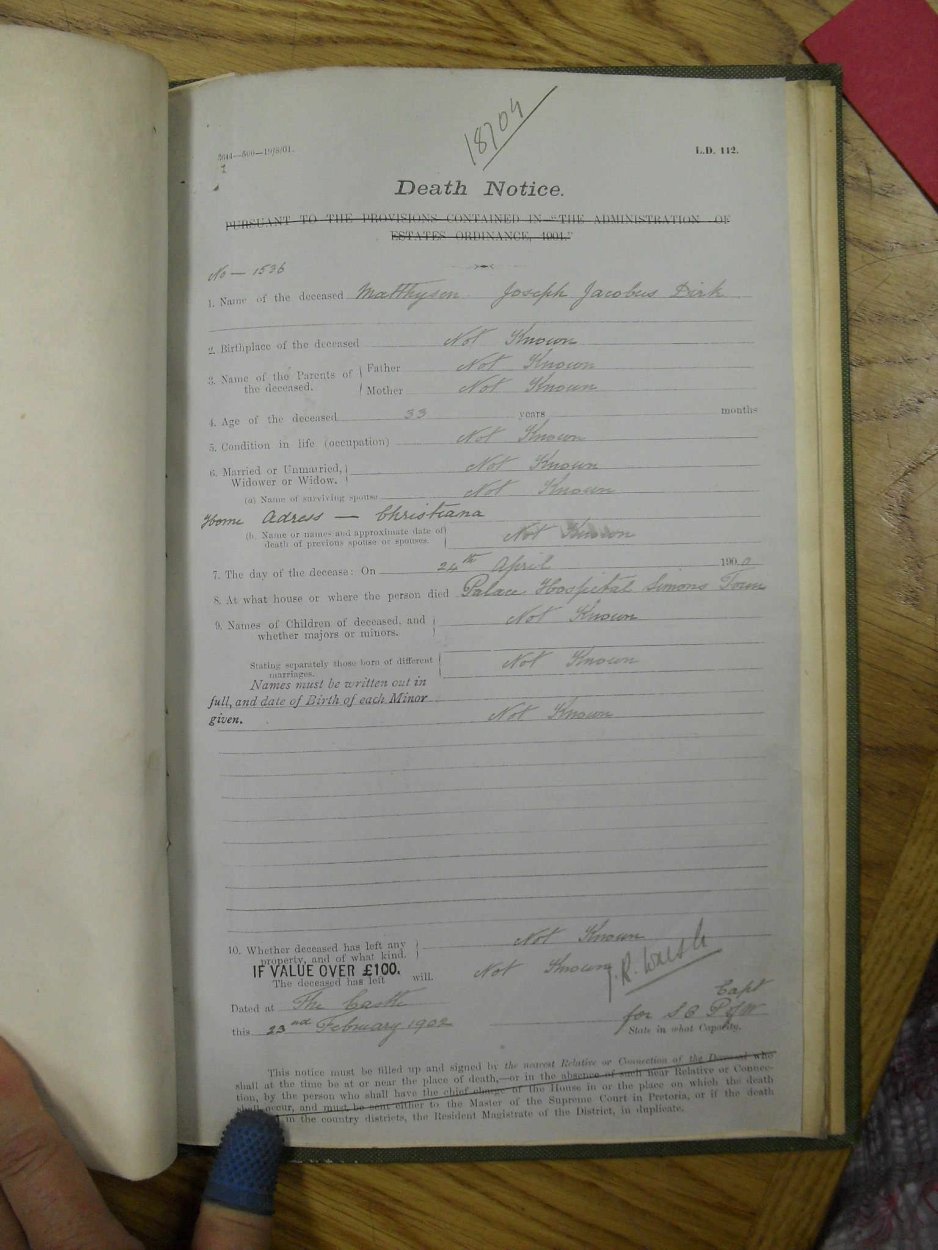 18704
2644—500—19/8/01.
L.D. 112.
Death Notice.
PURSUANT TO THE PROVISIONS CONTAINED IN "THE ADMINISTRATION OF
ESTATES ORDINANCE, 1901."
No — 1536
1. Name of the deceased Matthysen Joseph Jacobus Dirk
2. Birthplace of the deceased Not Known
3. Name of the Parents of the deceased. Father Not Known
Mother Not Known
4. Age of the deceased 33 years months
5. Condition in life (occupation) Not Known
6. Married or Unmarried, Widower or Widow. Not Known
(a) Name of surviving spouse Not Known
Home Adress — Christiana
(b. Name or names and approximate date of death of previous spouse or spouses. Not Known
7. The day of the decease: On 24th April 1900
8. At what house or where the person died Palace Hospital Simons Town
9. Names of Children of deceased, and whether majors or minors. Not Known
Stating separately those born of different marriages. Not Known
Names must be written out in
full, and date of Birth of each Minor
given. Not Known
10. Whether deceased has left any property, and of what kind. Not Known
IF VALUE OVER £100.
The deceased has left will. Not Known
J.R. Walsh
Capt
Dated at The Castle
for S O P of W
this 23nd February 1902
State in what Capacity.
This notice must be filled up and signed by the nearest Relative or Connection of the Deceased who
shall at the time be at or near the place of death,—or in the absence of such near Relative or Connec-
tion, by the person who shall have the chief charge of the House in or the place on which the death
shall occur, and must be sent either to the Master of the Supreme Court in Pretoria, or if the death
in the country districts, the Resident Magistrate of the District, in duplicate.